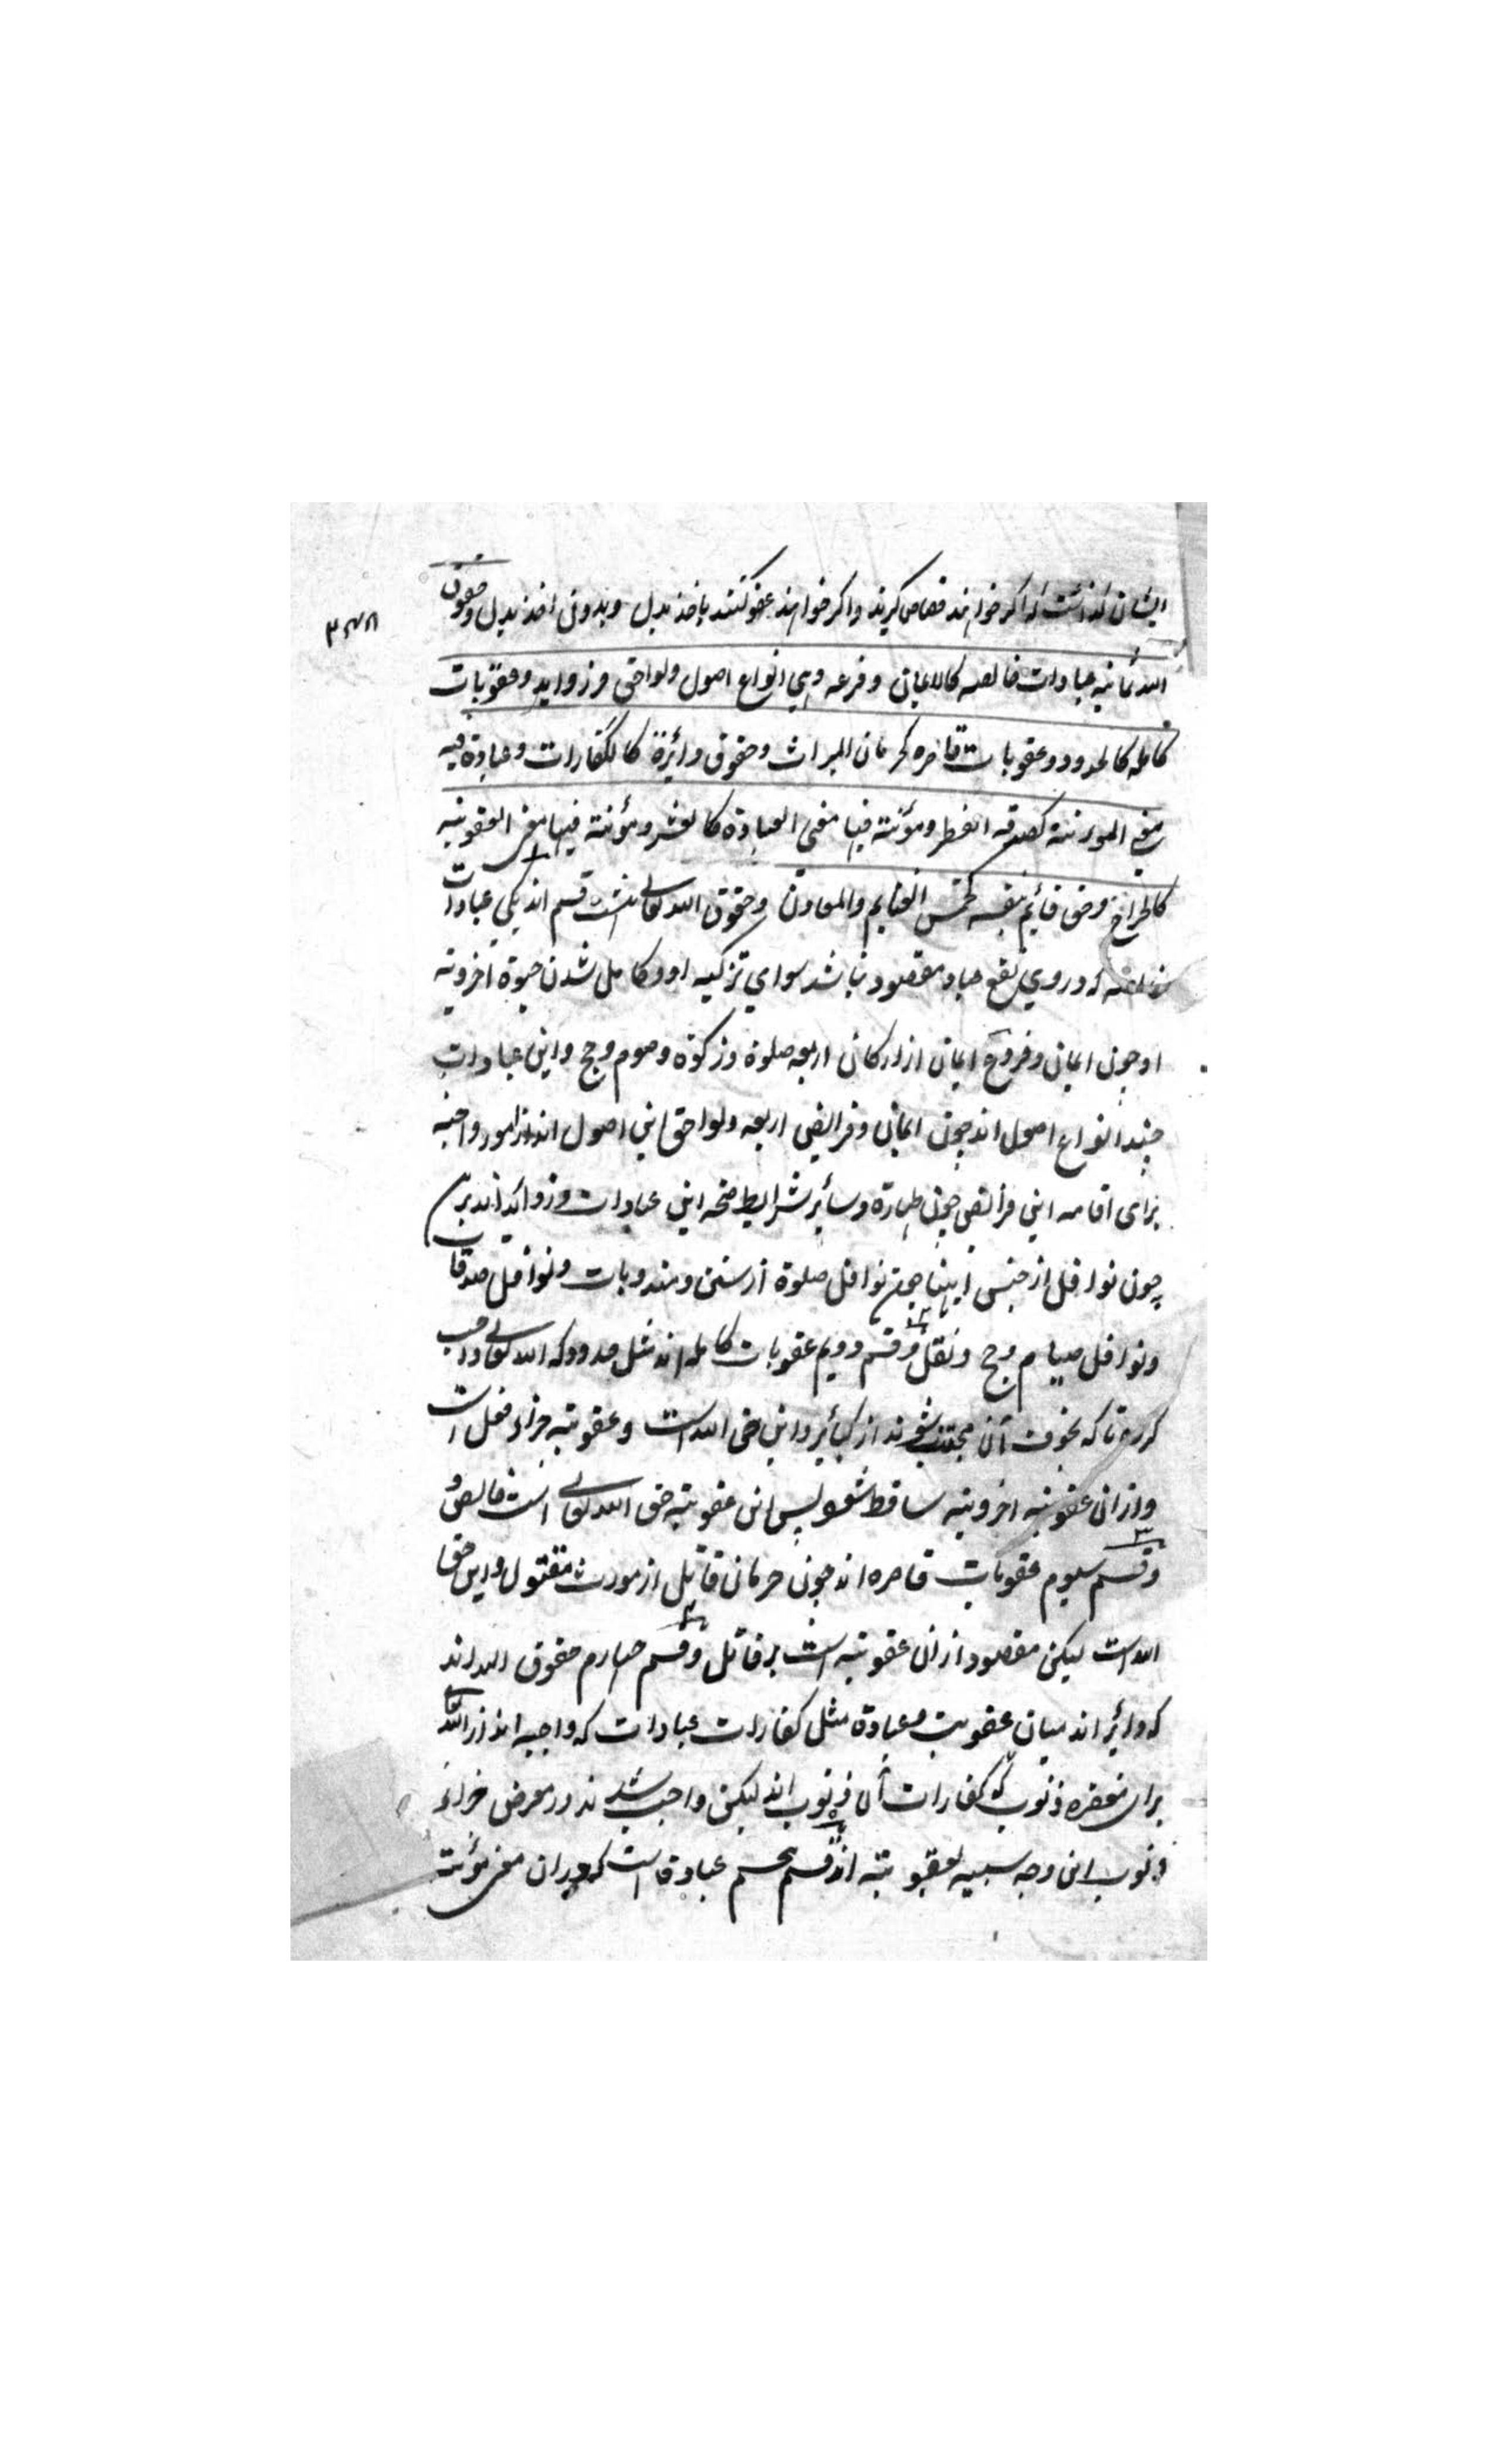 ایشان گذاشت که اگر خواهند قصاص گیرند و اگر خواهند عفو کنند باخذ بدل و بدون اخذ بدل وحقوق
الله ثمانیه عبادات خالصه کالایمان و فروعه وهی انواع اصول ولواحق و زواید وعقوبات
کامله کالحدود وعقوبات قاصره کحرمان المیراث وحقوق دائرة کالکفارات وعبادة فیه
معنی المؤنته کصدقه الفطر ومؤنته فیها معنی العبادة کالعشر ومؤنته فیها معنی العقوبته
کالخراج وحق قائم بنفسه کخمس الغنایم والمعادن وحقوق الله تعالی هشت قسم اند یکی عبادات
خالصه که در وی نفع عباد مقصود نباشد سوای تزکیه او و کامل شدن حیوة اخرویه
او چون ایمان و فروع ایمان از ارکان اربعه صلوة و زکوة و صوم و حج و این عبادات
چند انواع اصول اند چون ایمان و فرایض اربعه ولواحق این اصول اند از امور واجبه
برای اقامه این فرایض چون طهارة و سائر شرایط صحه این عبادات و زواید اند برین
چون نوافل از جنس اینها چون نوافل صلوة از سنن و مندوبات و نوافل صدقات
و نوافل صیام و حج و نقل و قسم دویم عقوبات کامله اند مثل حدود که الله تعالی واجب
کرده تا که بخوف آن مجتنب شوند از کبائر و این حق الله است و عقوبته جزاء فعل است
و از ان عقوبته اخرویته ساقط شود پس این عقوبته حق الله تعالی است خالص و
و قسم سیوم عقوبات قاصره اند چون حرمان قاتل از مورث مقتول و این حق
الله است لیکن مقصود از ان عقوبته است بر قاتل و قسم چهارم حقوق الله اند
که دائر اند میان عقوبت و عبادة مثل کفارات عبادات که واجبه اند از الله تعالی
برای مغفره ذنوب که کفارات آن ذنوب اند لیکن واجب شدند در معرض جزاء
ذنوب این وجه سببیه لعقوبته اند قسم پنجم عبادة است که در ان معنی مؤنت